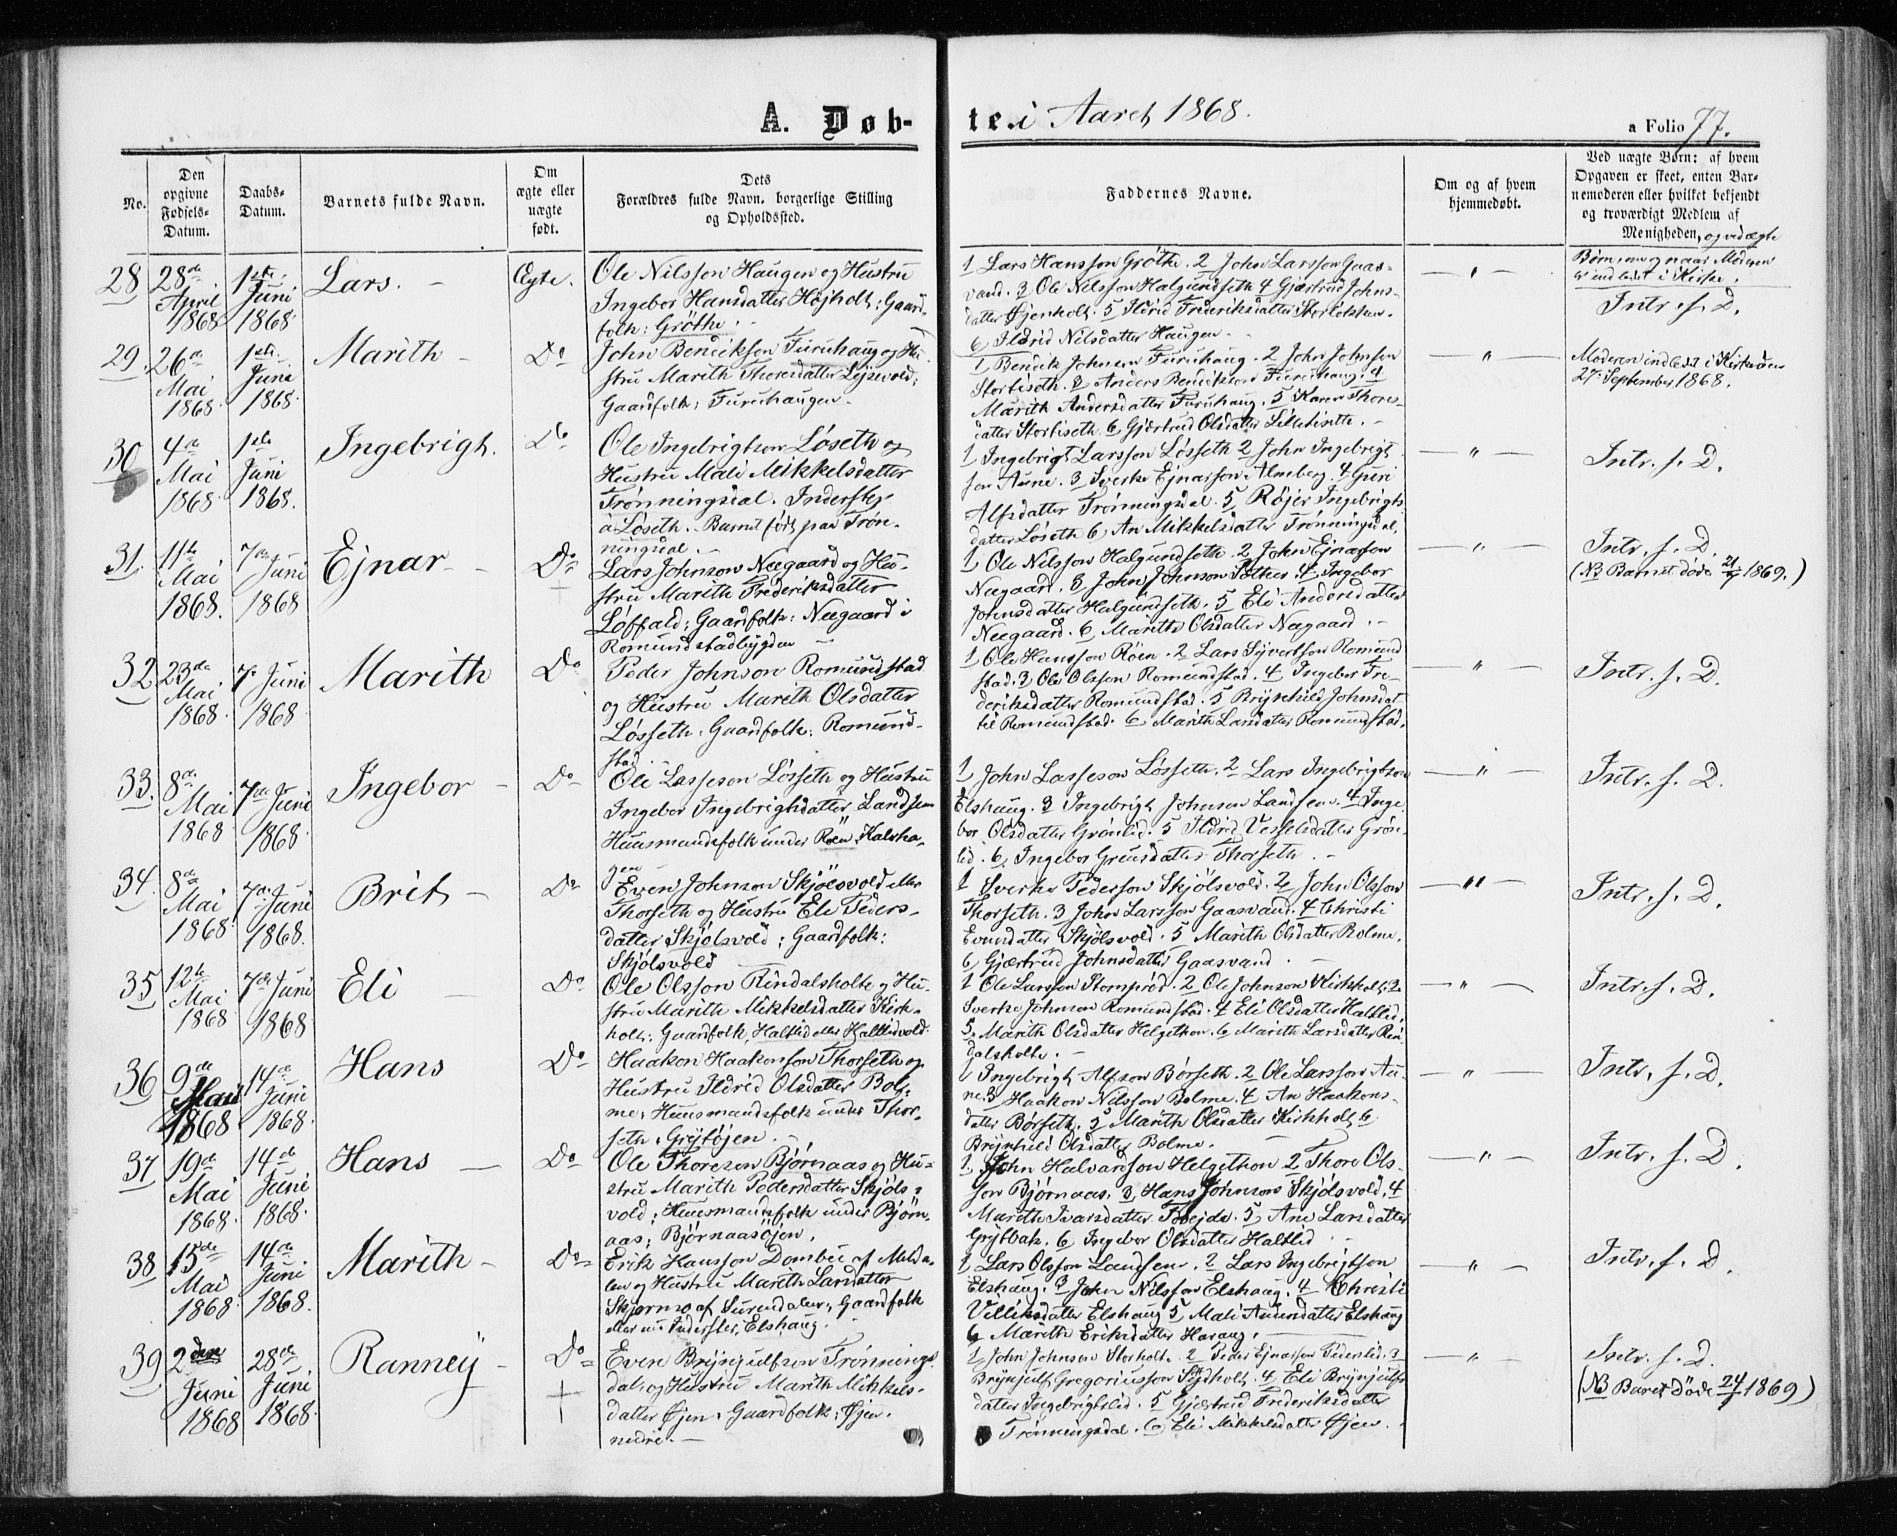 A. Døb-
te i Aaret 1868.
a Folio 77.
No.
Den
opgivne
Fødsels-
Datum.
Daabs-
Datum.
Barnets fulde Navn.
Om
ægte eller
uægte
født.
Dets
Forældres fulde Navn, borgerlige Stilling
og Opholdssted.
Faddernes Navne.
Om og af hvem
hjemmedøbt.
Ved uægte Børn: af hvem
Opgaven er skeet, enten Bar-
nemoderen eller hvilket bekjendt
og troværdigt Medlem af
Menigheden, og ved ægte
Børn om og naar Moderen
er indledet i Kirke.
28
28de
April
1868
1ste
Juni
1868
Lars. -
Ægte.
Ole Nilsson Haugen og Hustru
Ingebor Hansdatter Højholt; Gaard-
folk: Grøthe.
1 Lars Hansson Grøthe. 2 John Larsson Gaas-
vand. 3 Ole Nilsson Halgundseth 4 Gjærtrud Johns-
datter Øjenholt. 5 Ildrid Frideriksdatter Storløkken.
6 Ildrid Nilsdatter Haugen.
— " —
Intr. f. D.
29
26de
Mai
1868
1ste
Juni
1868.
Marith -
Do
John Bendikson Furuhaug og Hu-
stru Marith Thoresdatter Lejsevold;
Gaardfolk; Furuhaugen.
1 Bendik Johnson Furuhaug. 2 John Johnson
Stortiseth. 3 Anders Bendikson Furuhaug. 4
Marith Andersdatter Furuhaug. 5 Karen Thores-
datter Stortiseth. 6 Gjærtrud Olsdatter
— " —
Moderen indledt i Kirken
27. September 1868.
30
4de
Mai
1868
1ste
Juni
1868.
Ingebrigt.
Do
Ole Ingebrigtson Løseth og
Hustru Mali Mikkelsdatter
Trønningsdal. Inderster
a Løseth. Barnet født paa Trøn-
ningsdal.
1 Ingebrigt Larsson Løsseth 2 John Ingebrigt-
son Aune. 3 Sverke Ejnarsson Almberg. 4 Guri
Alfsdatter Trønningsdal. 5 Røjer Ingebrigts-
datter Løseth 6 An Mikkelsdatter Trønningsdal.
— " —
Intr. f. D.
31.
11te
Mai
1868.
7de Juni
1868
Ejnar -
Do
+
Lars Johnson Negaard og Hu-
stru Marith Frederiksdatter
Løffald; Gaardfolk: Negaard i
Romundstadbygden
1 Ole Nilsson Halgundseth 2 John Ejnarson
Negaard. 3 John Johnson Sæther. 4 Ingebor
Johnsdatter Halgundseth. 5 Eli Andersdatter
Negaard. 6 Marith Olsdatter Negaard.
— " —
Intr. f. D.
(NB Barnet døde 1869.)
32
23de
Mai
1868
7. Juni
1868
Marith
Do
Peder Johnson Romundstad
og Hustru Marith Olsdatter
Løsseth. Gaardfolk: Romund-
stad
1 Ole Hansson Røen. 2 Lars Sivertson Romund
stad. 3 Ole Olsson Romundstad. 4 Ingebor Fre-
deriksdatter Romundstad. 5 Brynhild Johnsdat
ter Romundstad. 6 Marith Larsdatter Romundstad.
— " —
Intr. f. D.
33.
8de
Mai
1868
7de Juni
1868
Ingebor -
Do
Ole Lasseson Løsseth og Hustru
Ingebor Ingebrigtsdatter Landsem
Huusmandsfolk under Røen, Kalsha-
gen
1 John Lasseson Løsseth. 2 Lars Ingebrigtson
Elshaug. 3 Ingebrigt Johnson Landsem. 4 Inge
bor Olsdatter Grønlid. 5 Ildrid Vesselsdatter Grøn-
lid. 6. Ingebor Greusdatter Thorseth.
— " —
Intr. f. D.
34.
8de
Mai
1868
7de Juni
1868.
Brit -
Do
Even Johnson Skjølsvold eller
Thorseth og Hustru Eli Peders-
datter Skjølsvold; Gaardfolk:
Skjølsvold
1 Sverke Pederson Skjølsvold. 2 John Olsson
Thorseth. 3 John Larsson Gaasvand. 4 Christi
Evensdatter Skjølsvold. 5 Marith Olsdatter Bolme.
6 Gjærtrud Johnsdatter Gaasvand.
— " —
Intr. f. D.
35
12te
Mai
1868
7de Juni
1868
Eli -
Do
Ole Olsson Rindalsholte og Hu-
stru Marith Mikkelsdatter Kirk-
holt: Gaardfolk, Haltlid eller Haltlidvold.
1 Ole Larsson Stomprød. 2 Ole Johnson Kirkholt. 3
Sverke Johnson Romundstad. 4 Eli Olsdatter Haltlid.
5. Marith Olsdatter Helgethon. 6 Marith Larsdatter Rin-
dalsholte.
— " —
Intr. f. D.
36
9de
Mai
1868
14de
Juni
1868.
Hans
Do
Haakon Haakonson Thorseth og
Hustru Ildrid Olsdatter Bol-
me, Huusmandsfolk under Thor-
seth, Grytøjen.
1 Ingebrigt Alfson Børseth. 2 Ole Larsson Au-
ne. 3 Haakon Nilsson Bolme. 4 An Haakons-
datter Børseth. 5 Marith Olsdatter Kirkholt 6
Brynhild Olsdatter Bolme.
— " —
Intr. f. D.
37
19de
Mai
1868
14de
Juni
1868.
Hans —
Do
Ole Thoreson Bjørnaas og Hu-
stru Marith Pedersdatter Skjøls-
vold; Huusmandsfolk under Bjørn-
aas; Bjørnaasøjen.
1 John Halvardson Helgethon 2 Thore Ols-
son Bjørnaas. 3 Hans Johnson Skjølsvold. 4
Marith Ivarsdatter 5 Ane Larsdatter
Grytbak. 6 Ingebor Olsdatter Haltlid
— " —
Intr. f. D.
38
15de
Mai
1868
14de
Juni
1868.
Marith -
Do
Erik Hansson Dombu af Melda-
len og Hustru Marith Larsdatter
Skjermo af Surendalen; Gaardfolk
eller nu Inderster, Elshaug.
1 Lars Olsson Landsem. 2 Lars Ingebrigtson
Elshaug. 3 John Nilsson Elshaug. 4 Christi
Villiksdatter Elshaug 5 Mali Andersdatter Elshaug
6 Marith Eriksdatter Haraug.
— " —
Intr. f. D.
39
2den
Juni
1868
28de
Juni
1868
Ranneij -
Do
+
Even Brynjulfson Trønnings-
dal, og Hustru Marith Mikkels-
datter Øjen, Gaardfolk; Øjen
nedre. —
1 John Johnson Storholt. 2 Peder Ejnarson Pederslid. 3
Brynjulf Gregoriusson Sejdholt. 4 Eli Brynjulfs
datter Ingebrigtslid. 5 Gjærtrud Frederiksdatter
Trønningsdal. 6 Eli Mikkelsdatter Øjen.
— " —
Intr. f. D.
(NB Barnet døde 24/7 1869)